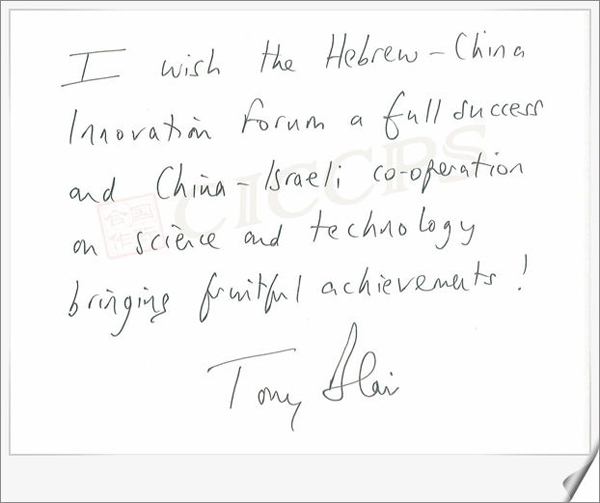 I wish the Hebrew-China
Innovation Forum a full success
and China-Israeli co-operation
on science and technology
bringing fruitful achievements!
Tony Blair
CICCPS